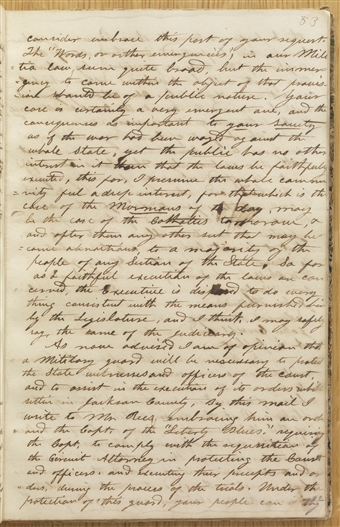 83
consider embrace this part of your request.
The "Words, or other emergencies", in our Mili
tia law seem quite broad, but the inmer-
gency to come within the object of that provis
ion should be of a public nature. Your
case is certainly a very emergent one, and the
consequences as important to your Society
as if the war had been waged against the
whole State, yet the public has no other
interest in it than that the laws be faithfully
executed, thus far, I presume the whole commu-
nity feel a deep interest, for that which is the
case of the Mormons to day, may
be the case of the Catholics to morrow, &
and after them any other sect that may be
come obnoxious, to a majority of the
people of any Section of the State, So far
as a faithful execution of the laws are con
cerned the Executive is disposed to do every
thing consistent with the means furnished him
by the Legislature, and I think I may safely
say the same of the judiciary.
As now advised I am of opinion that
a Military guard will be necessary to protect
the State witnesses and officers of the court,
and to assist in the execution of its orders while
sitten in Jackson County, By this mail I
write to Mr. Rees, embrocing him an order
and the Capt. of the "Liberty Blues" requiring
the Capt, to comply with the requisition of
the Circuit Attorney in protecting the Court
and officers. and executing their precepts and or
ders, during the process of the trials. Under the
protection of this guard, your people can